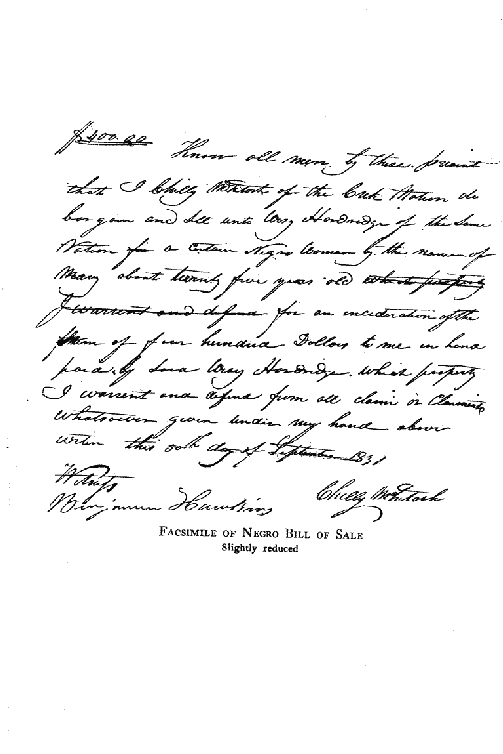 $400.00 Know all men by these present
that I Chilly McIntosh of the Creek Nation do
bargain and Sell unto Wray Hardridge of the Same
Nation for a Certain Negro Woman by the name of
Mary about twenty five years old which property
I warrent and defend for an concideration of the
Sum of four hundred Dollars to me in hand
paid by Said Wray Hardridge which property
I warrent and defend from all claim or Claiments
Whatsoever given under my hand above
writen this day of September 183
Witness
Benjamin Hawkins Chilly McIntosh
FACSIMILE OF NEGRO BILL OF SALE
Slightly reduced